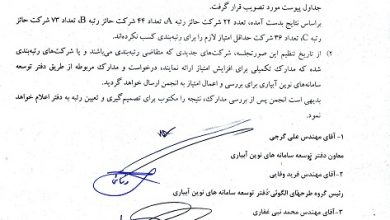 جداول پیوست مورد تصویب قرار گرفت.
براساس نتایج بدست آمده، تعداد ۲۲ شرکت حائز رتبه A، تعداد ۴۴ شرکت حائز رتبه B، تعداد ۷۳ شرکت حائز
رتبه C، تعداد ۳۶ شرکت حداقل امتیاز لازم را برای رتبه‌بندی کسب نکرده‌اند.
۲) از تاریخ تنظیم این صورتجلسه، شرکت‌های جدیدی که متقاضی رتبه‌بندی می‌باشند و یا شرکت‌های رتبه‌بندی
شده که مدارک تکمیلی برای افزایش امتیاز ارائه نمایند، درخواست و مدارک مربوطه از طریق دفتر توسعه
سامانه‌های نوین آبیاری برای بررسی و اعمال امتیاز به انجمن ارسال خواهد گردید.
بدیهی است انجمن پس از بررسی مدارک، نتیجه را مکتوب برای تصمیم‌گیری و تعیین رتبه به دفتر اعلام خواهد
نمود.
۱- آقای مهندس علی گرجی
معاون دفتر توسعه سامانه های نوین آبیاری
۲- آقای مهندس فرید وفایی
رئیس گروه طرحهای الگوئی دفتر توسعه سامانه های نوین آبیاری
۳- آقای مهندس محمد نبی غفاری